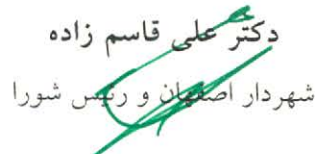 دکتر علی قاسم زاده
شهردار اصفهان و رئیس شورا